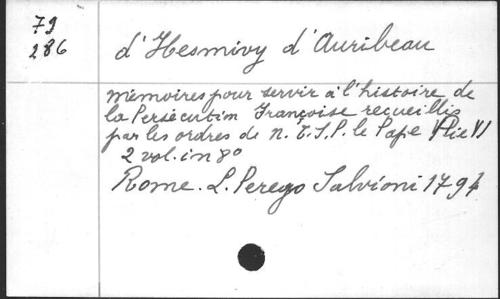 79
286
d'Hesmivy d'Auribeau
Mémoires pour servir à l'histoire de
la Persécution Françoise recueillis
par les ordres de N. T. S. P. le Pape (Pie VI)
2 vol. in 8°
Rome. L. Perego Salvioni 1794